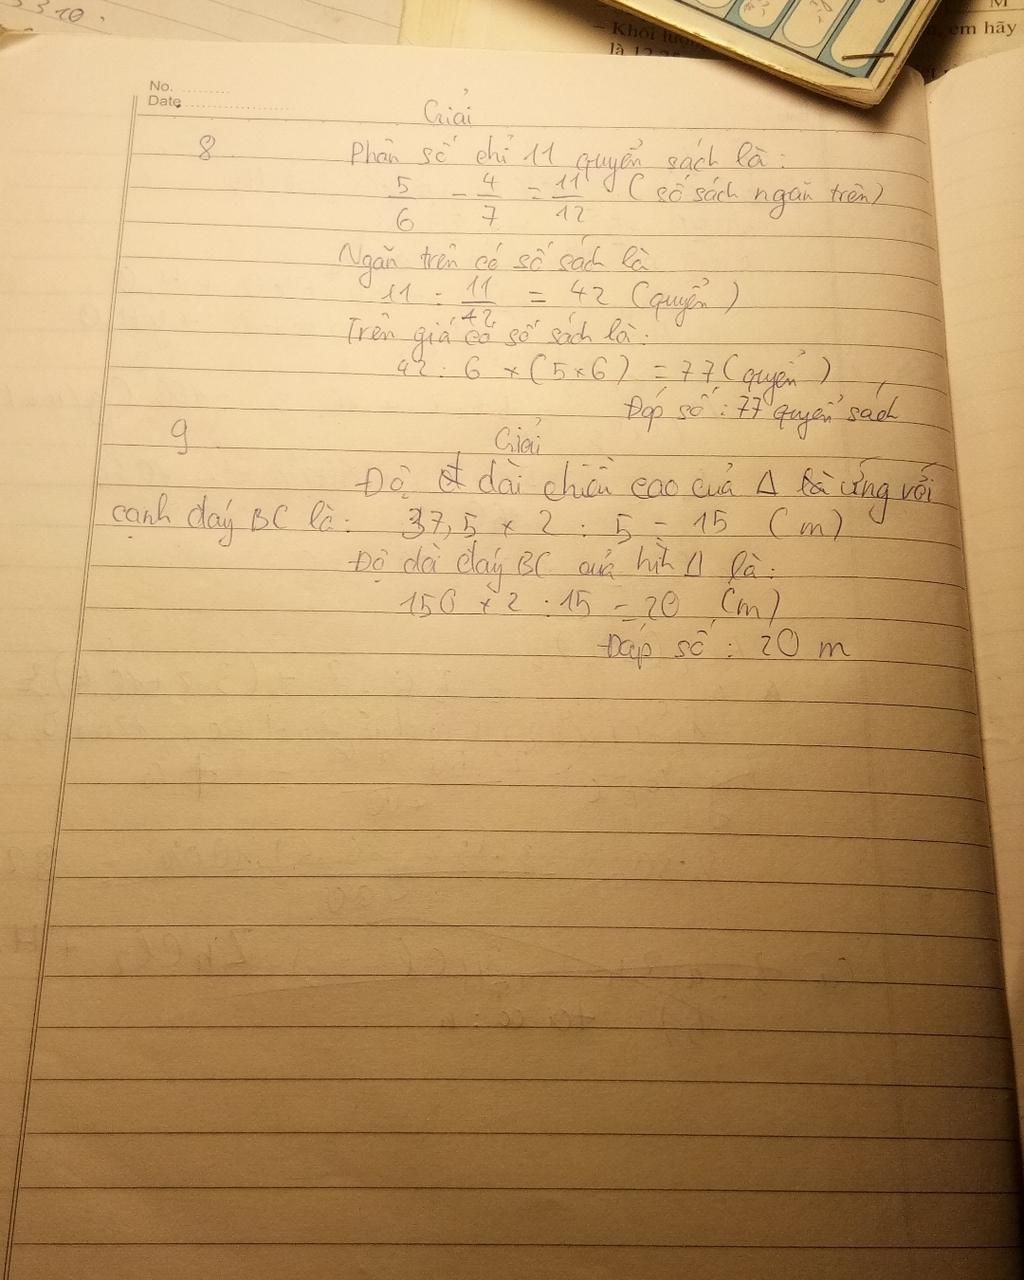 3310.
M
– Khối lượng
em hãy
là 12,
No. ..........
Date ......................
Giải
8
Phân số chỉ 11 quyển sách là:
5/6 - 4/7 = 11/12 (số sách ngăn trên)
Ngăn trên có số sách là
11 : 11/42 = 42 (quyển)
Trên giá có số sách là:
42 : 6 × (5×6) = 77 (quyển)
Đáp số : 77 quyển sách
9
Giải
Độ dài chiều cao của Δ là ứng với
cạnh đáy BC là: 37,5 × 2 : 5 = 15 (m)
Độ dài đáy BC của hình Δ là:
150 × 2 : 15 = 20 (m)
Đáp số : 20 m